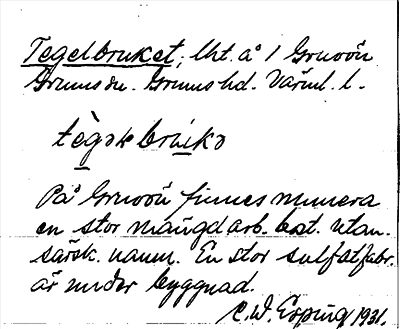 Tegelbruket, lht. å 1 Gruvön
Grums sn. Grums hd. Värml. l.
tègəlbrùkə
På Gruvön finnes numera
en stor mängd arb. bost. utan
särsk. namn. En stor sulfatfabr.
är under byggnad.
C. W. Erping 1931.